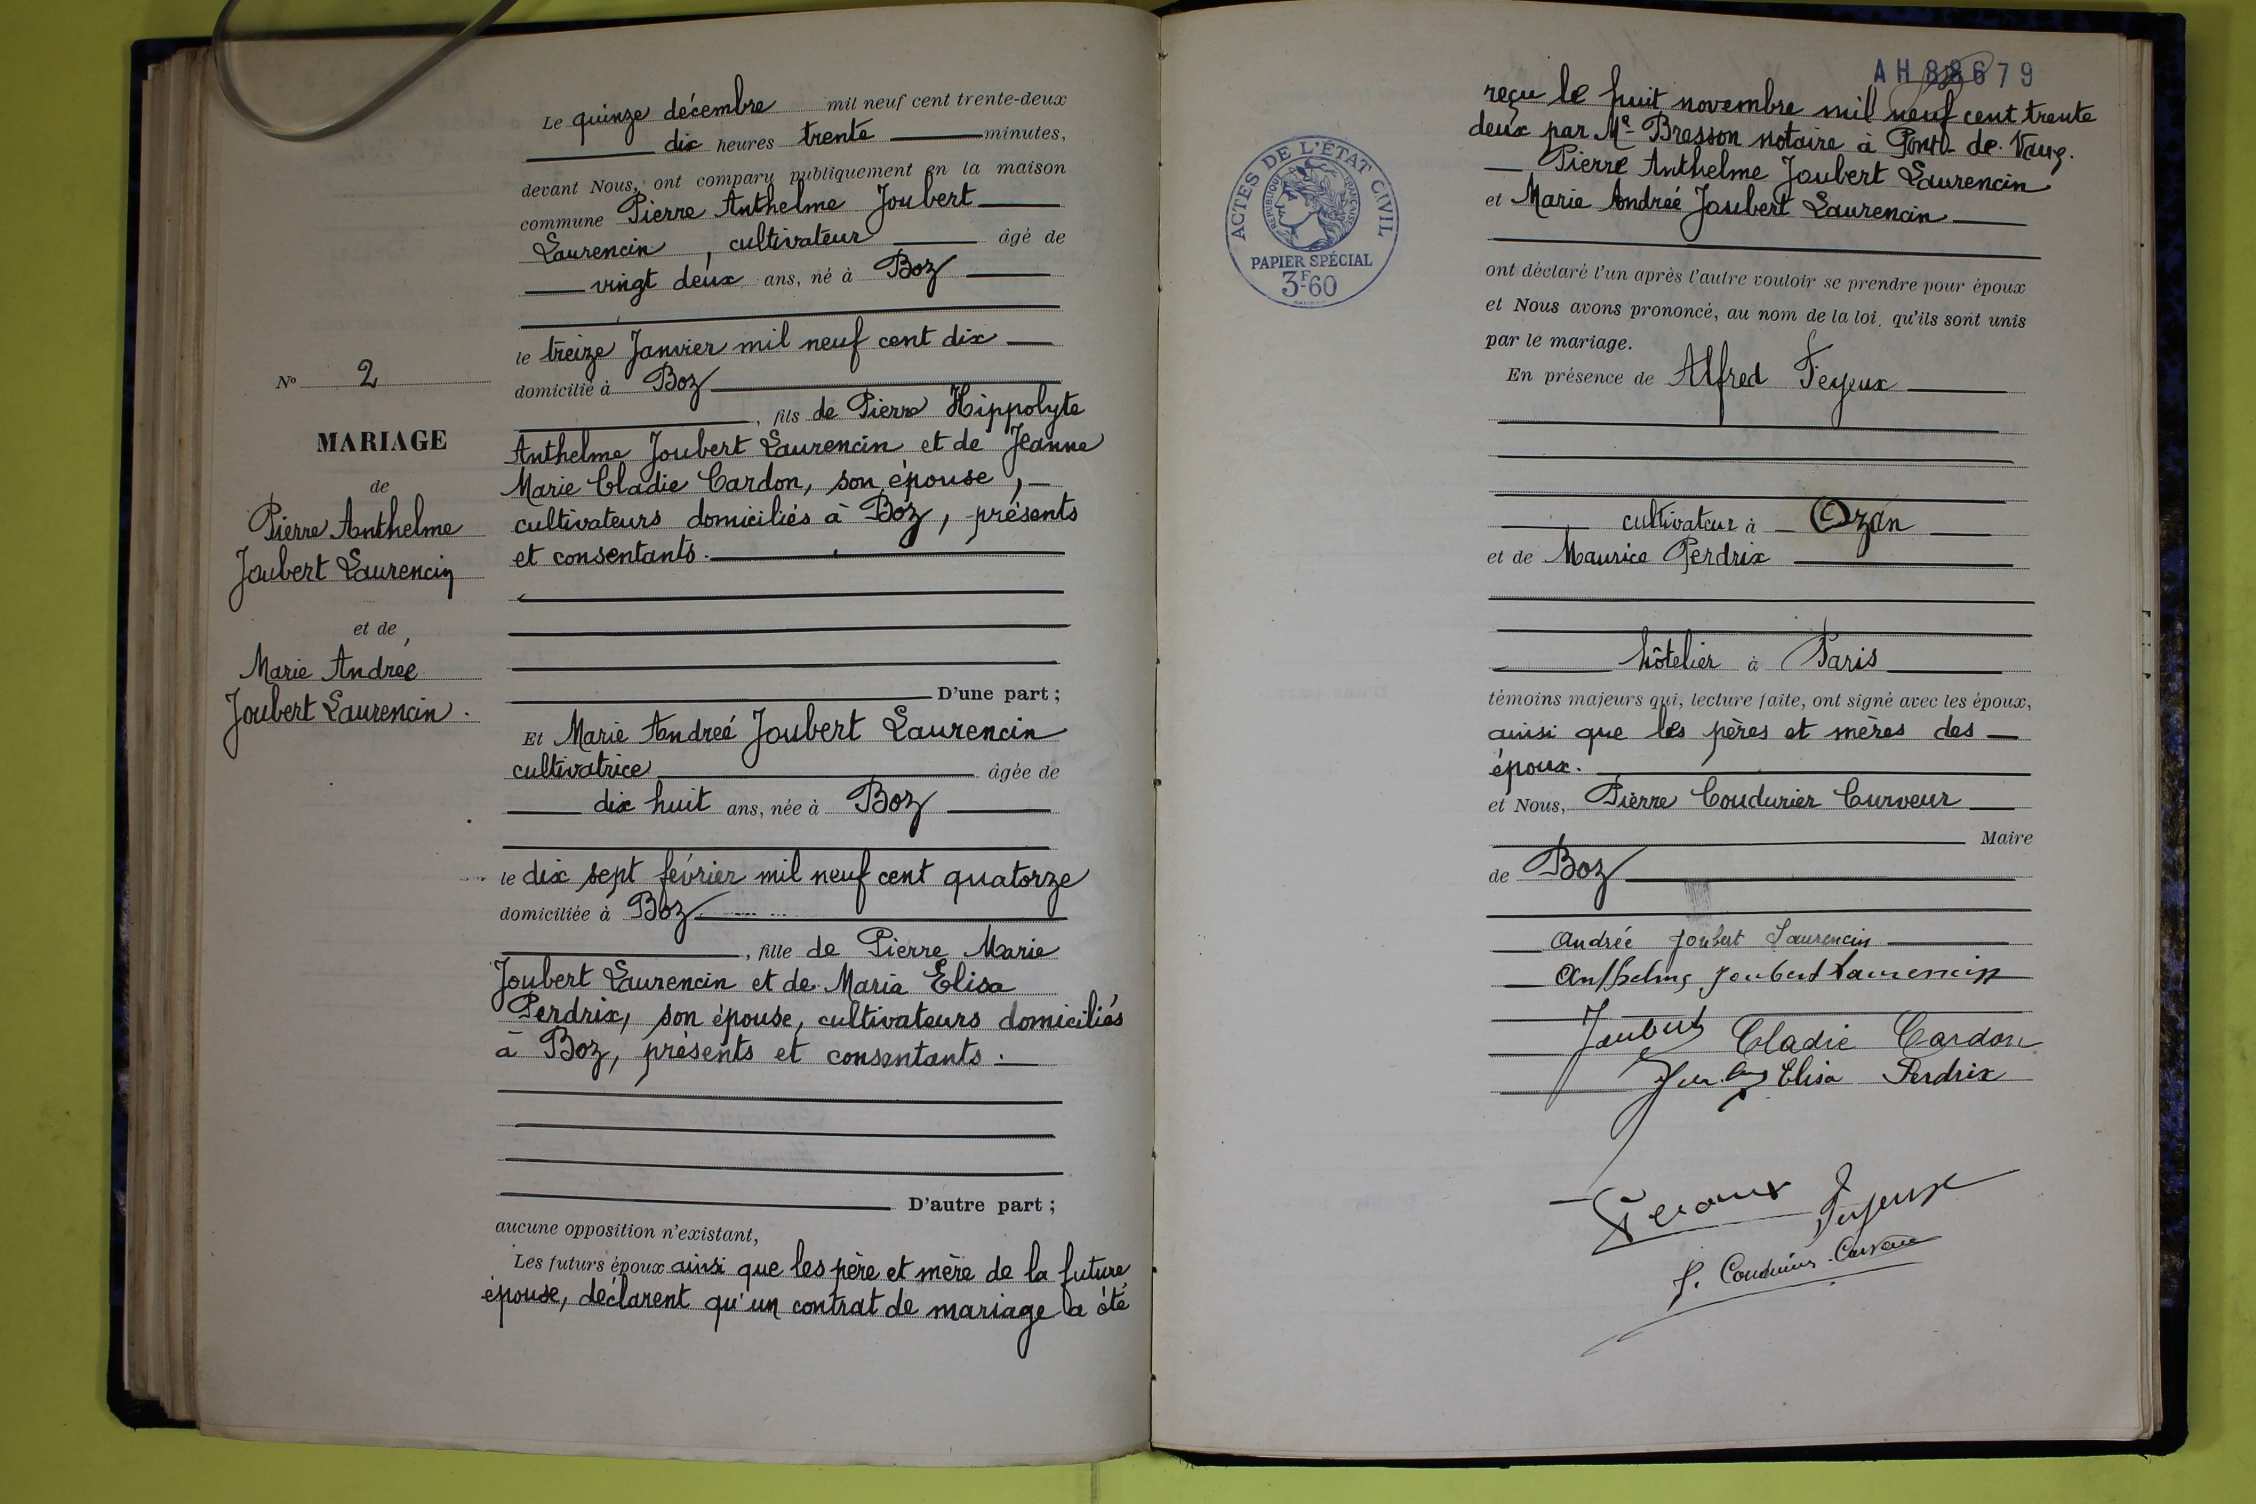 Le quinze décembre mil neuf cent trente-deux
dix heures trente minutes,
devant Nous, ont comparu publiquement en la maison
commune Pierre Anthelme Joubert
Laurencin, cultivateur âgé de
vingt deux ans, né à Boz
le treize Janvier mil neuf cent dix
domicilié à Boz
, fils de Pierre Hippolyte
Anthelme Joubert Laurencin et de Jeanne
Marie Cladie Cardon, son épouse,
cultivateurs domiciliés à Boz, présents
et consentants.
D'une part ;
Et Marie Andreé Joubert Laurencin
cultivatrice âgée de
dix huit ans, née à Boz
le dix sept février mil neuf cent quatorze
domiciliée à Boz
, fille de Pierre Marie
Joubert Laurencin et de Maria Elisa
Perdrix, son épouse, cultivateurs domiciliés
à Boz, présents et consentants.
D'autre part ;
aucune opposition n'existant,
Les futurs époux ainsi que les père et mère de la future
épouse, déclarent qu'un contrat de mariage a été
N° 2
MARIAGE
de
Pierre Anthelme
Joubert Laurencin
et de
Marie Andreé
Joubert Laurencin.
AH 88679
reçu le huit novembre mil neuf cent trente
deux par Me Bresson notaire à Pont-de-Vaux.
Pierre Anthelme Joubert Laurencin
et Marie Andreé Joubert Laurencin
ACTES DE L'ÉTAT CIVIL
RÉPUBLIQUE FRANÇAISE
PAPIER SPÉCIAL
3F60
ont déclaré l'un après l'autre vouloir se prendre pour époux
et Nous avons prononcé, au nom de la loi, qu'ils sont unis
par le mariage.
En présence de Alfred Feyeux
cultivateur à Ozan
et de Maurice Perdrix
hôtelier à Paris
témoins majeurs qui, lecture faite, ont signé avec les époux,
ainsi que les pères et mères des
époux.
et Nous, Pierre Coudurier Curveur
Maire
de Boz
Andrée Joubert Laurencin
Anthelme Joubert Laurencin
Joubert Cladie Cardon
Elisa Perdrix
Feyeux
P. Coudurier-Curveur